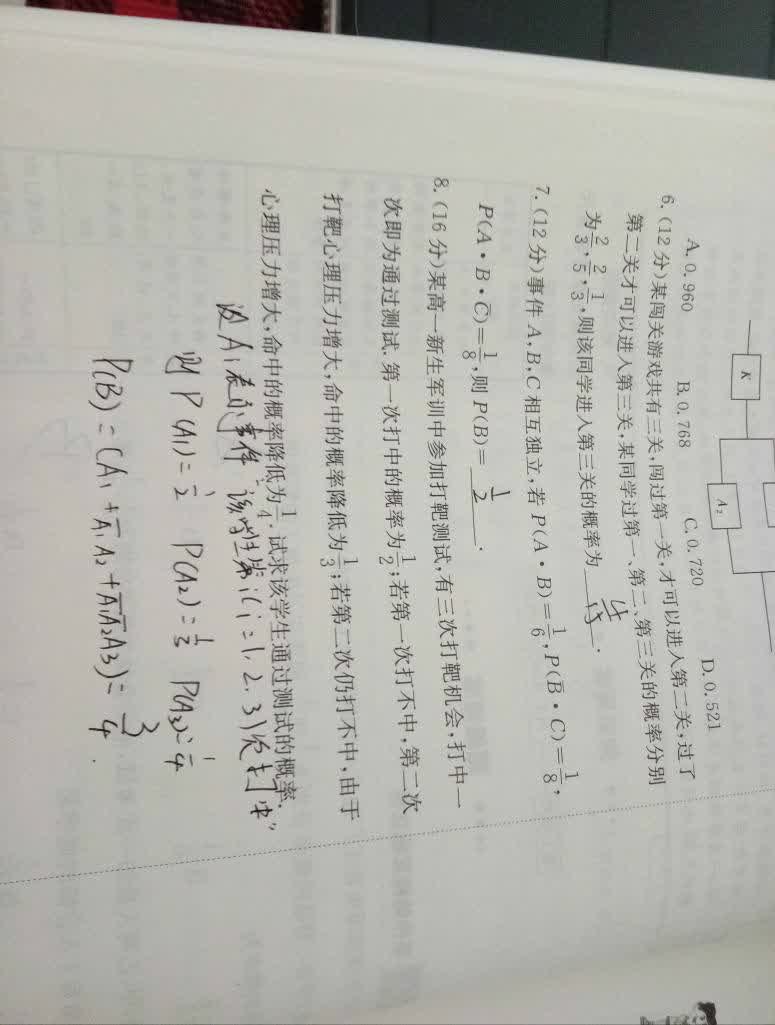 K
A₂
A. 0.960 B. 0.768 C. 0.720 D. 0.521
6. (12分)某闯关游戏共有三关,闯过第一关,才可以进入第二关,过了
第二关才可以进入第三关,某同学过第一、第二、第三关的概率分别
为2/3,2/5,1/3,则该同学进入第三关的概率为 4/15 .
7. (12分)事件A,B,C相互独立,若P(A·B)=1/6,P(B̄·C)=1/8,
P(A·B·C̄)=1/8,则P(B)= 1/2 .
8. (16分)某高一新生军训中参加打靶测试,有三次打靶机会,打中一
次即为通过测试.第一次打中的概率为1/2;若第一次打不中,第二次
打靶心理压力增大,命中的概率降低为1/3;若第二次仍打不中,由于
心理压力增大,命中的概率降低为1/4.试求该学生通过测试的概率.
设Aᵢ表示事件“该学生第i(i=1,2,3)次打中”
则P(A₁)=1/2 P(A₂)=1/3 P(A₃)=1/4
P(B)=(A₁+Ā₁A₂+Ā₁Ā₂A₃)=3/4.